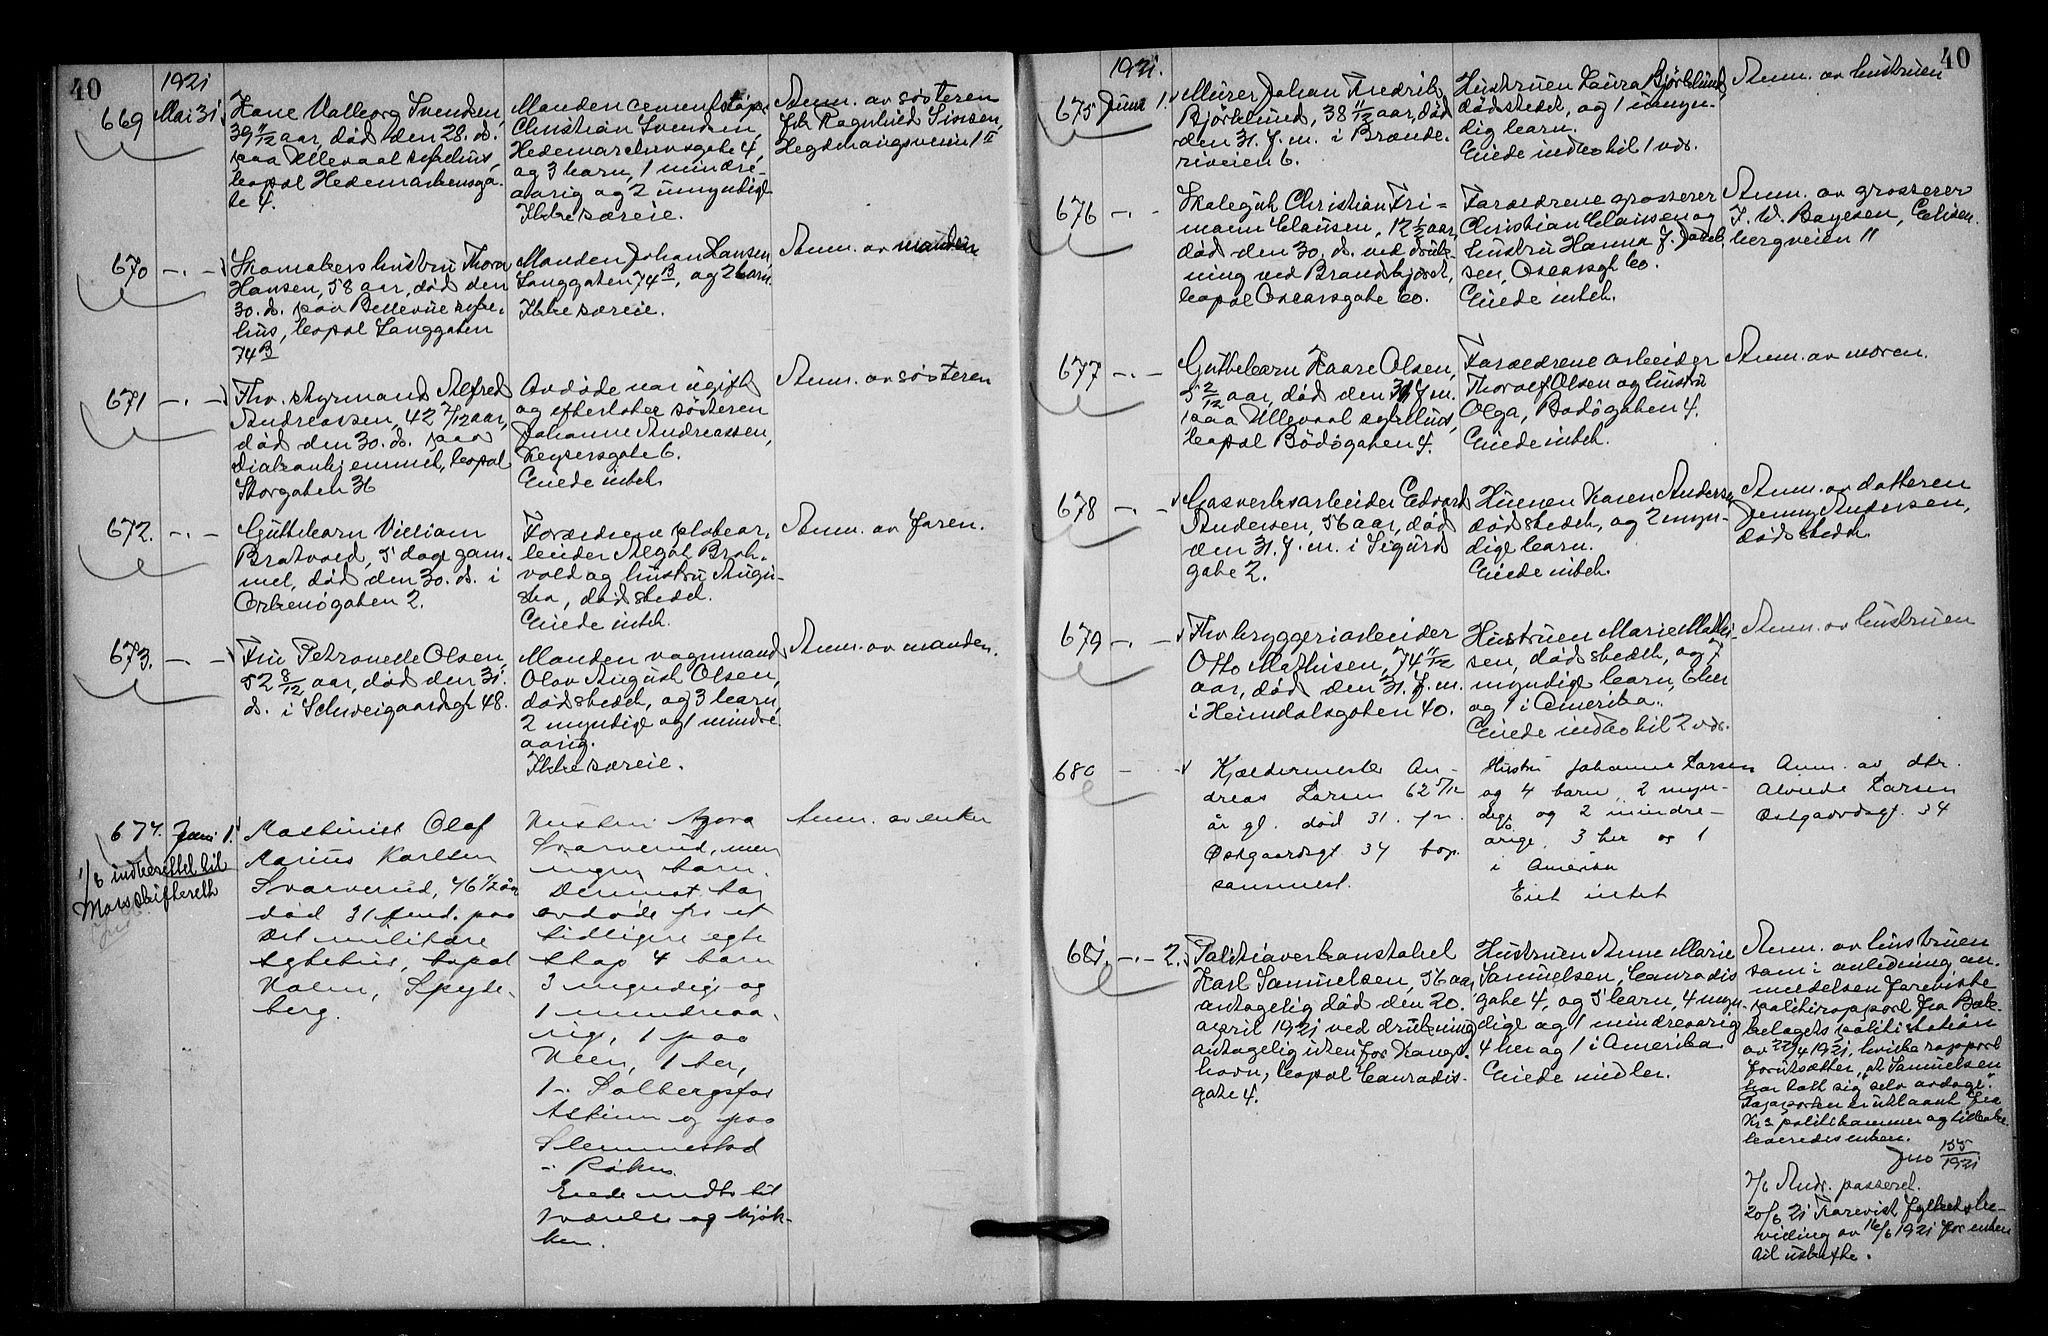 40
1921
669 Mai 31
Kone Valborg Svendsen,
39 11/12 aar, død den 28. ds.
paa Ullevaal sykehus,
bopæl Hedemarkensga-
te 4.
Manden cementstøper
Christian Svendsen,
Hedemarkensgate 4,
og 3 barn, 1 mindre-
aarig og 2 umyndige
Ikke særeie.
Anm. av søsteren
frk Ragnhild Simsen,
Hegdehaugsveien 1 II
670 -"-
Skomakers hustru Thora
Hansen, 58 aar, død den
30. ds. paa Bellevue syke-
hus, bopæl Langgaten
74 B
Manden Johan Hansen
Langgaten 74 B, og 2 barn.
Ikke særeie.
Anm. av manden
671 -"-
Fhv. styrmand Alfred
Andreassen, 42 7/12 aar,
død den 30. ds. paa
Diakonhjemmet, bopæl
Storgaten 36
Avdøde var ugift
og efterlater søsteren
Johanne Andreassen,
Keysersgate 6.
Eiede intet.
Anm. av søsteren
672. -"-
Guttebarn William
Bratvold, 5 dage gam-
mel, død den 30. ds. i
Orkenøgaten 2.
Forældrene platear-
beider Algot Brat-
vold og hustru Augu-
sta, dødsstedet.
Eiede intet.
Anm. av faren.
673. -"-
Fru Petronelle Olsen,
52 8/12 aar, død den 31.
ds. i Schweigaardsgt 48.
Manden vognmand
Olav August Olsen,
dødsstedet, og 3 barn,
2 myndige og 1 mindre-
aarig.
Ikke særeie.
Anm. av manden.
674. Juni 1.
1/6 indberettet til
Moss skifterett
Maskinist Olaf
Marius Karlsen
Svarverud, 46 1/2 år
død 31 f.md. paa
det militære
sykehus, bopæl
Holm, Spyde-
berg.
Hustru Agora
Svarverud, men
ingen barn.
Derimot har
avdøde fra et
tidligere egte-
skap 4 barn
3 myndige og
1 mindreaa-
rig, 1 paa
1 her,
1 - Solbergsfos
Askim og paa
Slemmestad
- Røken
Eiede indbo til
1 værelse og kjøk-
ken.
Anm. av enken
40
1921.
675 Juni 1.
Murer Johan Fredrik
Bjørklund, 38 11/12 aar, død
den 31. f. m. i Brænde-
riveien 6.
Hustruen Laura Bjørklund
dødsstedet, og 1 umyn-
dig barn.
Eiede indbo til 1 vær.
Anm. av hustruen
676 -"-
Skolegut Christian Fri-
mann Clausen, 12 1/2 aar,
død den 30. ds. ved druk-
ning ved
bopæl Oscarsgate 60.
Forældrene grosserer
Christian Clausen og
hustru Hanna f. Jacob-
sen, Oscarsgt 60.
Eiede intet.
Anm. av grosserer
J. W. Boyesen, Eilisen-
bergveien 11
677 -"-
Guttebarn Kaare Olsen,
5 2/12 aar, død den 31 f. m.
paa Ullevaal sykehus,
bopæl Bodøgaten 4.
Forældrene arbeider
Thoralf Olsen og hustru
Olga, Bodøgaten 4.
Eiede intet.
Anm. av moren.
678 -"-
Gasverksarbeider Edvard
Andersen, 56 aar, død
den 31. f. m. i Sigurds
gate 2.
Huenen Karen Andersen
dødsstedet, og 2 myn-
dige barn.
Eiede intet.
Anm. av datteren
Jenny Andersen,
dødsstedet.
679 -"-
Fhv bryggeriarbeider
Otto Mathisen, 74 11/12
aar, død den 31. f. m.
i Heimdalsgaten 40.
Hustruen Marie Mathi-
sen, dødsstedet, og 7
myndige barn, 6 her
og 1 i Amerika.
Eiede indbo til 2 vær.
Anm. av hustruen
680 -
Kjældermester An-
dreas Larsen 62 5/12
år gl. død 31. f.m.
Østgaardsgt. 34 bop.
sammest.
Hustru Johanne Larsen
og 4 barn, 2 myn-
dige og 2 mindre-
årige, 3 her og 1
i Amerika
Eiet intet
Anm. av dtr.
Alvilde Larsen
Østgaardsgt. 34
681. -"- 2.
Politioverkonstabel
Karl Samuelsen, 56 aar
antagelig død den 20.
april 1921 ved drukning
antagelig utenfor Kongs-
havn, bopæl Conradis-
gate 4.
Hustruen Anne Marie
Samuelsen, Conradis
gate 4, og 5 barn, 4 myn-
dige og 1 mindreaarig
4 her og 1 i Amerika
Eiede midler.
Anm. av hustruen
som i anledning an-
meldelsen foreviste
politirapport fra Bæk-
kelagets politistation
av 22/4 1921, hvilken rapport
forutsætter, "at Samuelsen
har tatt sig selv avdage".
Rapporten er utlaant fra
Kra politikammer og tilbake-
leveredes enken.
Jno 155/1921
2/6 Andr. passeret.
20/6 21 Forevist
av 16/6 1921 for enken